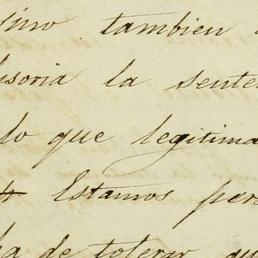 sino tambien
isoria la senten
lo que legitima
Estamos per
ha de tolerar qu